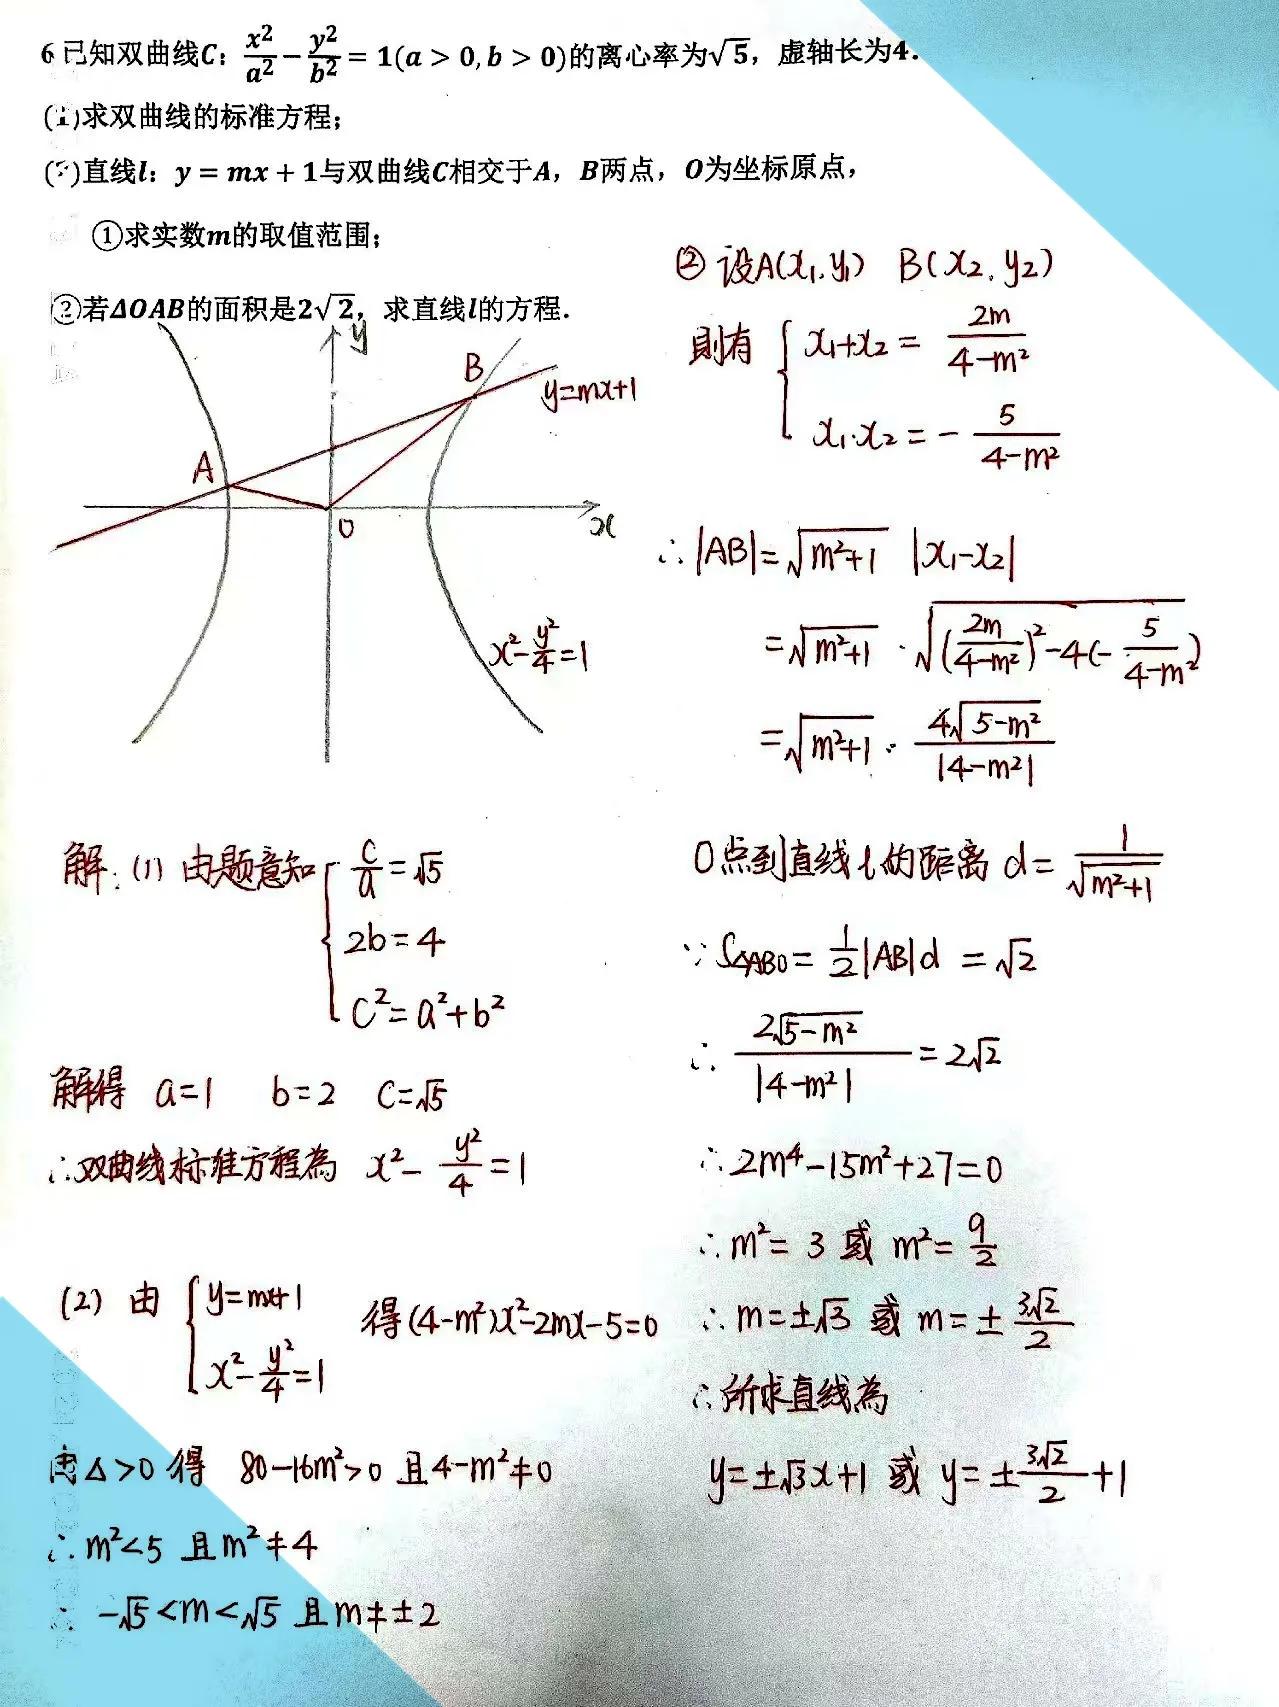 6 已知双曲线C：x²/a² − y²/b² = 1(a > 0, b > 0)的离心率为√5，虚轴长为4.
(1)求双曲线的标准方程；
(2)直线l：y = mx + 1与双曲线C相交于A，B两点，O为坐标原点，
①求实数m的取值范围；
②若ΔOAB的面积是2√2，求直线l的方程.
y
B
y=mx+1
A
O
x
x²-y²/4=1
解：(1) 由题意知 { c/a=√5
2b=4
c²=a²+b²
解得 a=1 b=2 c=√5
∴双曲线标准方程為 x²-y²/4=1
(2) 由 { y=mx+1
x²-y²/4=1
得(4-m²)x²-2mx-5=0
由△>0 得 80-16m²>0 且4-m²≠0
∴m²<5 且m²≠4
∴ -√5<m<√5 且m≠±2
② 设A(x₁,y₁) B(x₂,y₂)
則有 { x₁+x₂=2m/(4-m²)
x₁·x₂=-5/(4-m²)
∴|AB|=√(m²+1) |x₁-x₂|
=√(m²+1)·√((2m/(4-m²))²-4(-5/(4-m²))
=√(m²+1)·4√(5-m²)/|4-m²|
O点到直线l的距离 d=1/√(m²+1)
∵S△ABO=1/2|AB|d=√2
∴2√(5-m²)/|4-m²|=2√2
∴2m⁴-15m²+27=0
∴m²=3 或 m²=9/2
∴m=±√3 或 m=±3√2/2
∴所求直线為
y=±√3x+1 或 y=±3√2/2+1